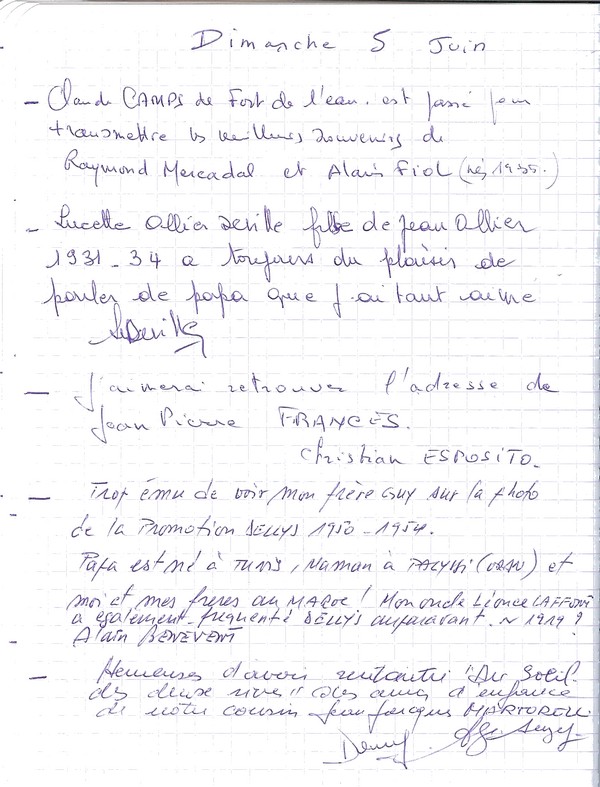 Dimanche 5 Juin
- Claude CAMPS de Fort de l'eau. est passé pour
transmettre les meilleurs souvenirs de
Raymond Mercadal et Alain Fiol (nés 1935.)
- Lucette Allier Deville fille de Jean Allier
1931-34 a toujours du plaisir de
parler de papa que j'ai tant aimé
LDeville
- J'aimerai retrouver l'adresse de
Jean Pierre FRANCES.
Christian ESPOSITO.
- Trop ému de voir mon frère Guy sur la photo
de la Promotion DELLYS 1950-1954.
Papa est né à TUNIS, Maman à (ORAN) et
moi et mes frères au MAROC! Mon oncle Léonce LAFFONT
a également fréquenté DELLYS auparavant. ~ 1919?
Alain BENEVENT
- Heureuses d'avoir rencontré "Au Soleil
des deux rives" des amis d'enfance
de notre cousin Jean Jacques MARTORELL.